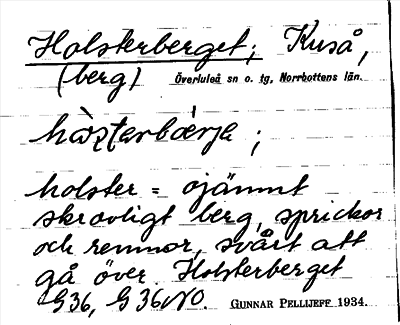 Holsterberget; Kuså,
(berg) Överluleå sn o. tg, Norrbottens län.
hòlstərbærjə;
holster = ojämnt
skrovligt berg, sprickor
och remnor, svårt att
gå över. Holsterberget
G36, G36NO. GUNNAR PELLIJEFF 1934.